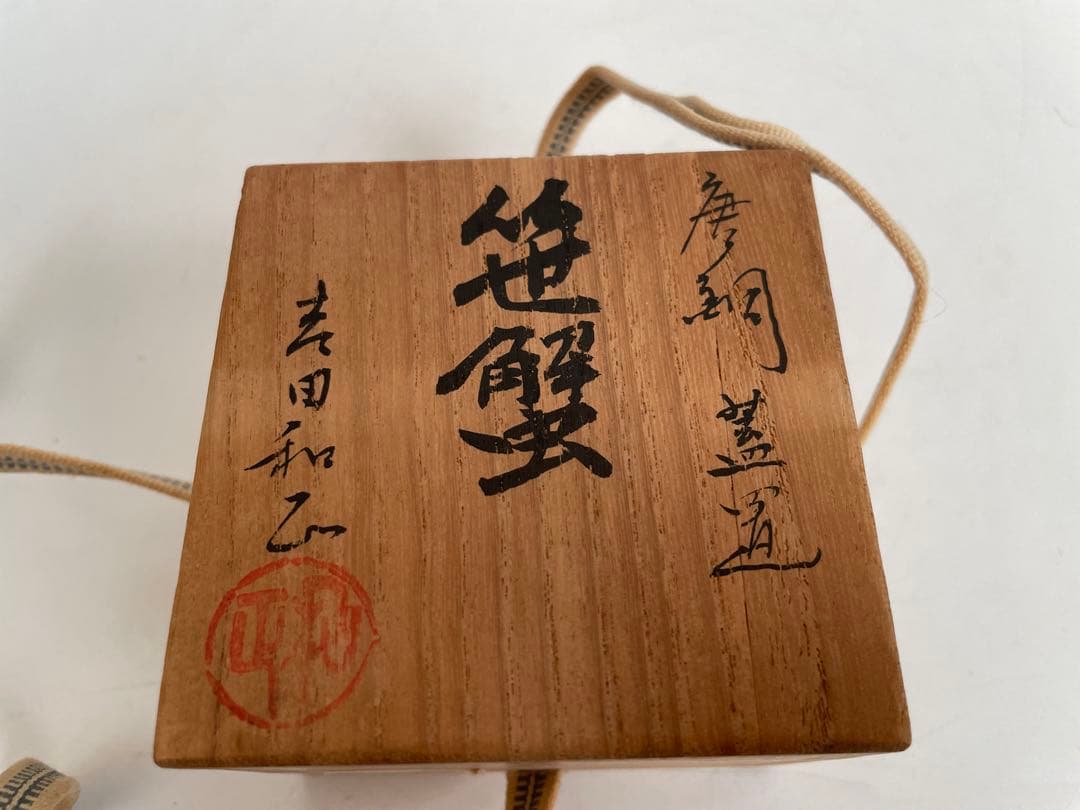 唐銅 蓋置
笹蟹
吉田和正